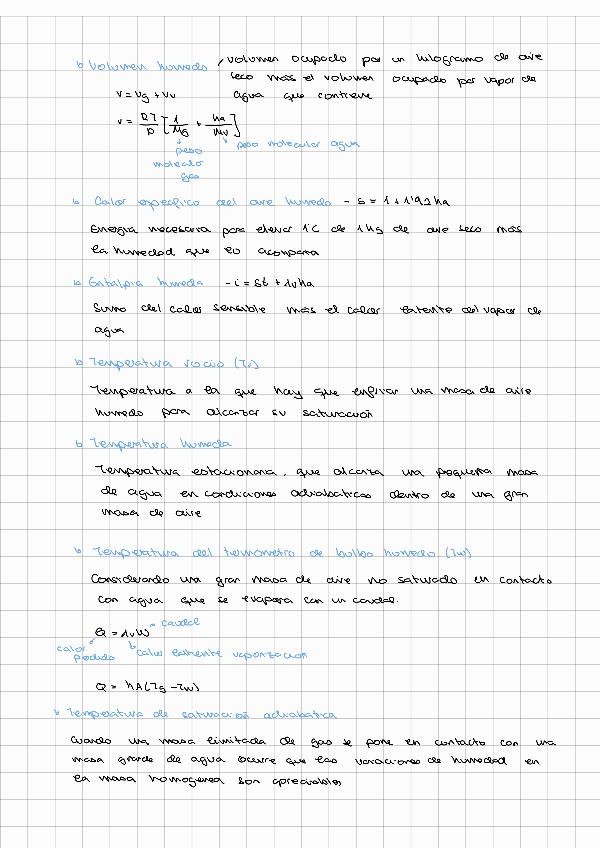 ↳ Volumen humedo, volumen ocupado por un kilogramo de aire
seco más el volumen ocupado por vapor de
agua que contiene
V = Vg + Vv
v = RT/P [1/Mg + ha/Mv]
peso molecular agua
peso
molecular
gas
↳ Calor especifico del aire humedo - s = 1 + 1'92 ha
Energia necesaria para elevar 1°C de 1 kg de aire seco más
la humedad que lo acompaña
↳ Entalpia humeda - i = st + λv ha
Suma del calor sensible más el calor latente del vapor de
agua
↳ Temperatura rocio (Tr)
Temperatura a la que hay que enfriar una masa de aire
humedo para alcanzar su saturación
↳ Temperatura humeda
Temperatura estacionaria, que alcanza una pequeña masa
de agua en condiciones adiabaticas dentro de una gran
masa de aire
↳ Temperatura del termometro de bulbo humedo (Tw)
Considerando una gran masa de aire no saturado en contacto
con agua que se evapora con un caudal.
Q = λv W → caudal
calor
perdido
calor latente vaporización
Q = hA(Tg - Tw)
↳ Temperatura de saturación adiabatica
Cuando una masa limitada de gas se pone en contacto con una
masa grande de agua ocurre que las variaciones de humedad en
la masa homogenea son apreciables